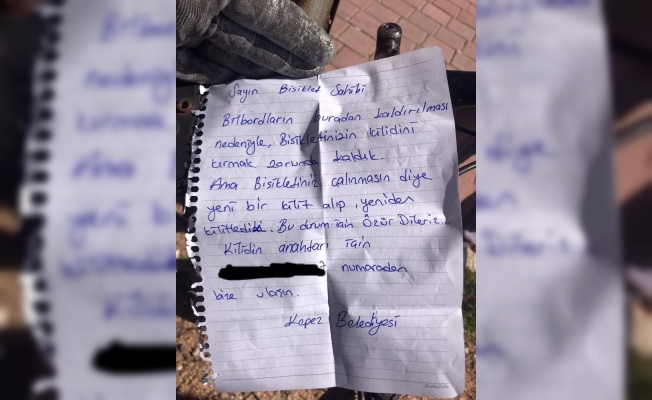 Sayın Bisiklet Sahibi
Bilbordların buradan kaldırılması
nedeniyle, Bisikletinizin kilidini
kırmak zorunda kaldık.
Ama Bisikletiniz çalınmasın diye
yeni bir kilit alıp, yeniden
kilitledik. Bu durum için Özür Dileriz...
Kilidin anahtarı için
numaradan
bize ulaşın.
Kepez Belediyesi